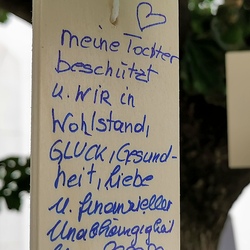 meine Tochter
beschützt
u. WIR in
Wohlstand,
GLÜCK, Gesund-
heit, Liebe
u. finanzieller
Unabhängigkeit